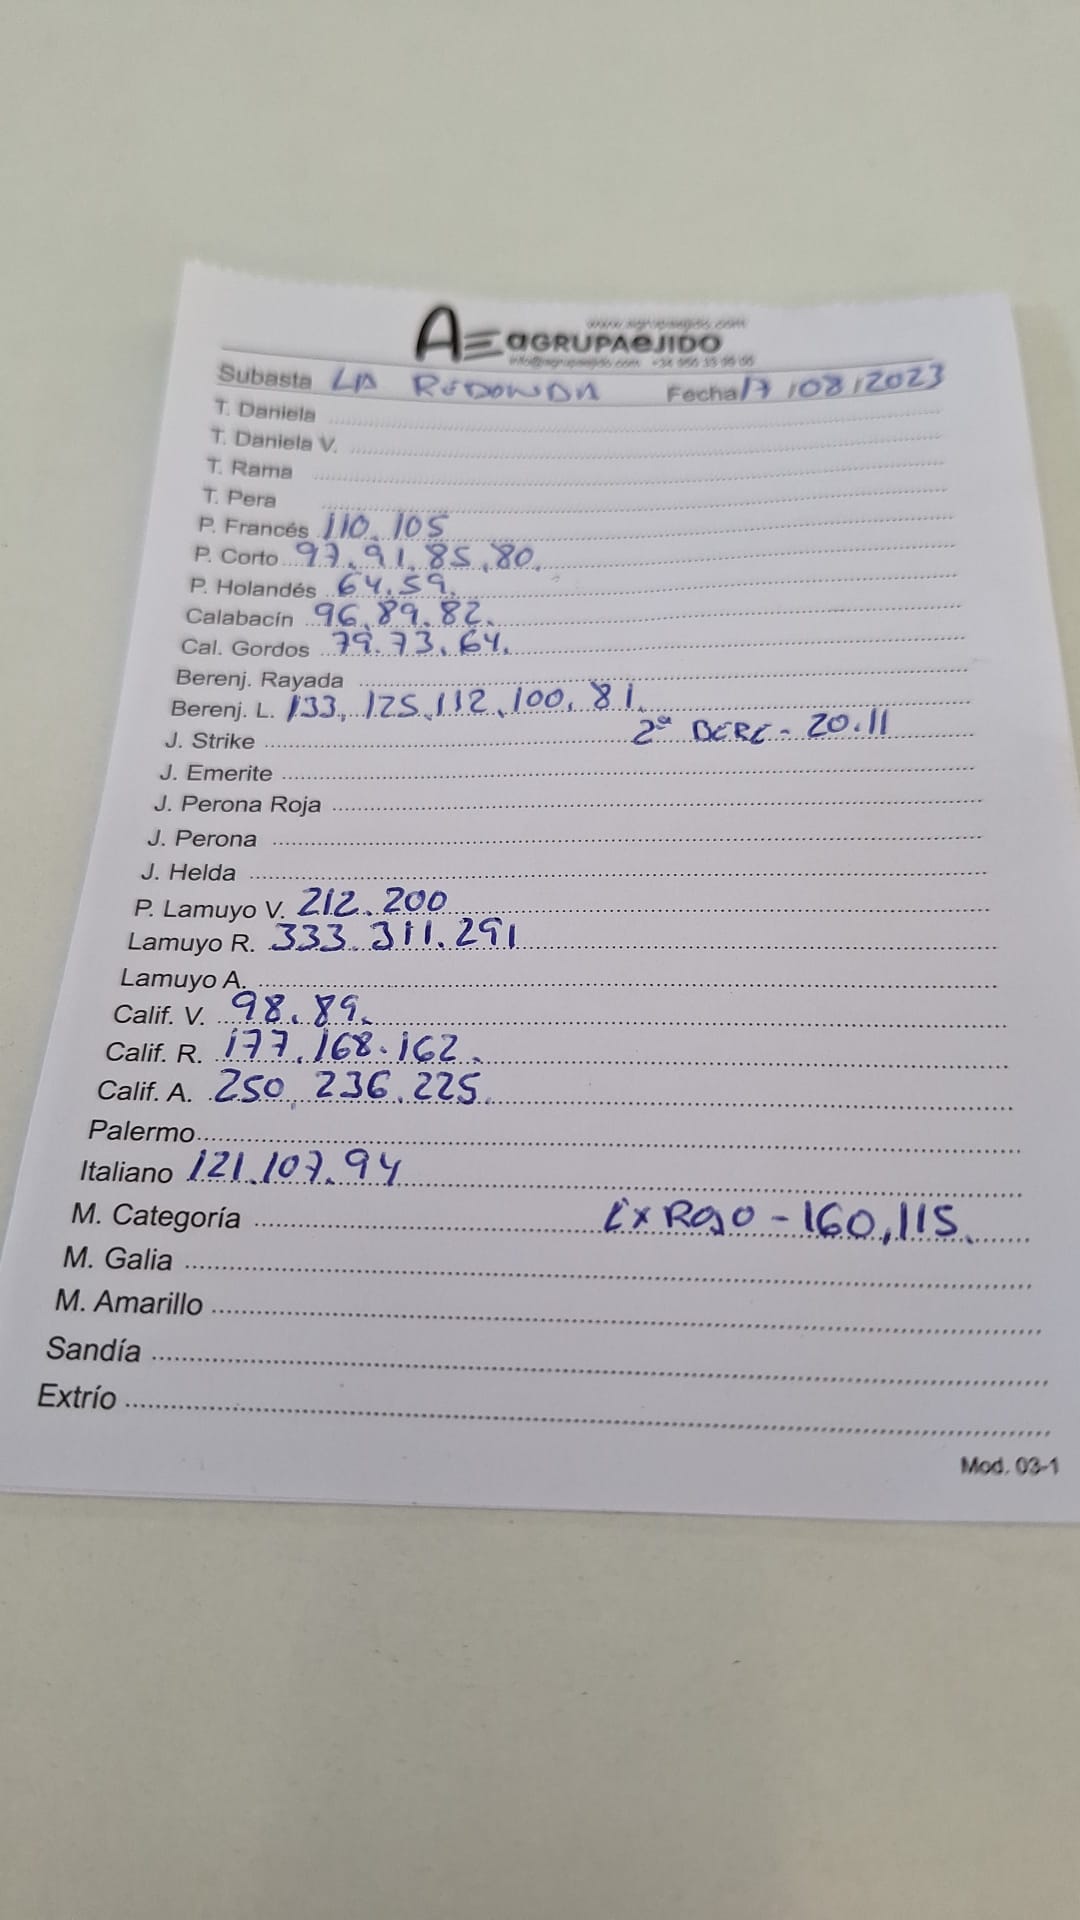 www.agrupaejido.com
AE aGRUPAeJIDO
info@agrupaejido.com
Subasta LA REDONDA Fecha 17/08/2023
T. Daniela
T. Daniela V.
T. Rama
T. Pera
P. Francés 110. 105
P. Corto 97. 91. 85. 80.
P. Holandés 64. 59.
Calabacín 96. 89. 82.
Cal. Gordos 79. 73. 64.
Berenj. Rayada
Berenj. L. 133, 125. 112. 100. 81.
J. Strike 2ª BERE - 20.11
J. Emerite
J. Perona Roja
J. Perona
J. Helda
P. Lamuyo V. 212. 200
Lamuyo R. 333. 311. 291
Lamuyo A.
Calif. V. 98. 89.
Calif. R. 177. 168. 162.
Calif. A. 250. 236. 225.
Palermo
Italiano 121. 107. 94
M. Categoría Ex ROJO - 160, 115.
M. Galia
M. Amarillo
Sandía
Extrío
Mod. 03-1